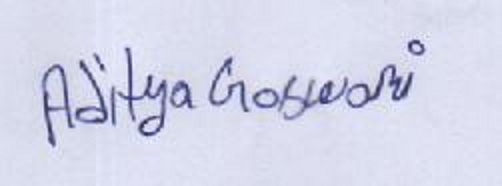 Aditya Goswami